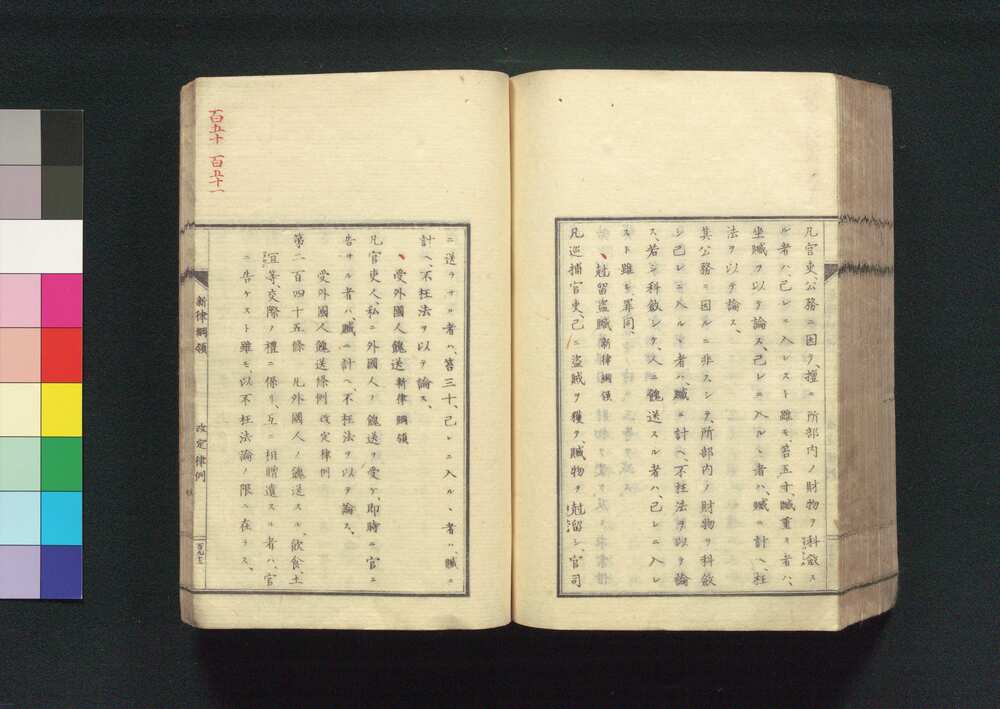 凡官吏、公務ニ因テ、擅ニ所部内ノ財物ヲ科斂ス
ル者ハ、己レニ入レスト雖モ、笞五十、贓重キ者ハ、
坐贓ヲ以テ論ス、己レニ入ルヽ者ハ、贓ニ計ヘ、枉
法ヲ以テ論ス、
其公務ニ因ルニ非スシテ、所部内ノ財物ヲ科斂
シ己レニ入ルヽ者ハ、贓ニ計ヘ、不枉法ヲ以テ論
ス、若シ科斂シテ、人ニ餽送スル者ハ、己レニ入レ
スト雖モ、罪同、
尅留盗贓 新律綱領
凡巡捕官吏、已ニ盗賊ヲ獲テ、贓物ヲ尅留シ、官司
ニ送ラサル者ハ、笞三十、己レニ入ルヽ者ハ、贓ニ
計ヘ、不枉法ヲ以テ論ス、
受外國人餽送 新律綱領
凡官吏人、私ニ外國人ノ餽送ヲ受ケ、即時ニ官ニ
告サル者ハ、贓ニ計ヘ、不枉法ヲ以テ論ス、
受外國人餽送條例 改定律例
第二百四十五條 凡外國人ノ餽送スル、飲食、土
宜等、交際ノ禮ニ係リ、互ニ相贈遺スル者ハ、官
ニ告ケスト雖モ、以不枉法論ノ限ニ在ラス、
新律綱領 改定律例
百五十 百五十一